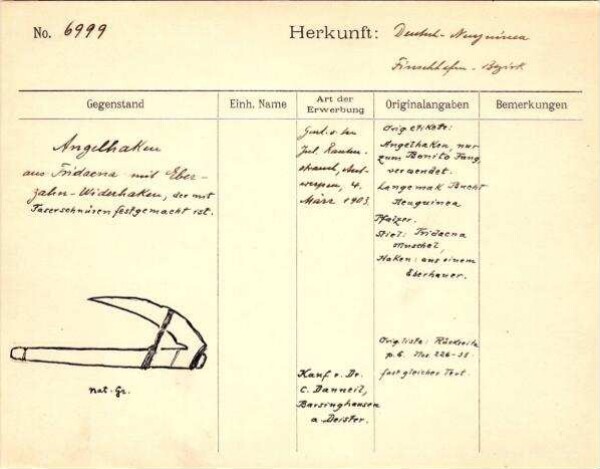 No. 6999
Herkunft: Deutsch-Neuguinea
Finschhafen-Bezirk
Gegenstand
Einh. Name
Art der Erwerbung
Originalangaben
Bemerkungen
Angelhaken
aus Tridacna mit Eber-
zahn-Widerhaken, der mit
Faserschnüren festgemacht ist.
nat. Gr.
Jul. Rauten-
strauch, Ant-
werpen, 4.
März 1903.
Kauf v. Dr.
C. Danneil,
Barsinghausen
a. Deister.
Orig. etikete:
Angelhaken, nur
zum Bonito Fang,
verwendet.
Langemak Bucht
Neuguinea
Pfalzer.
Stiel: Tridacna
Muschel,
Haken: aus einem
Eberhauer.
Orig. liste: Rückseite
p. 6. Nro 226-35.
fast gleicher Text.